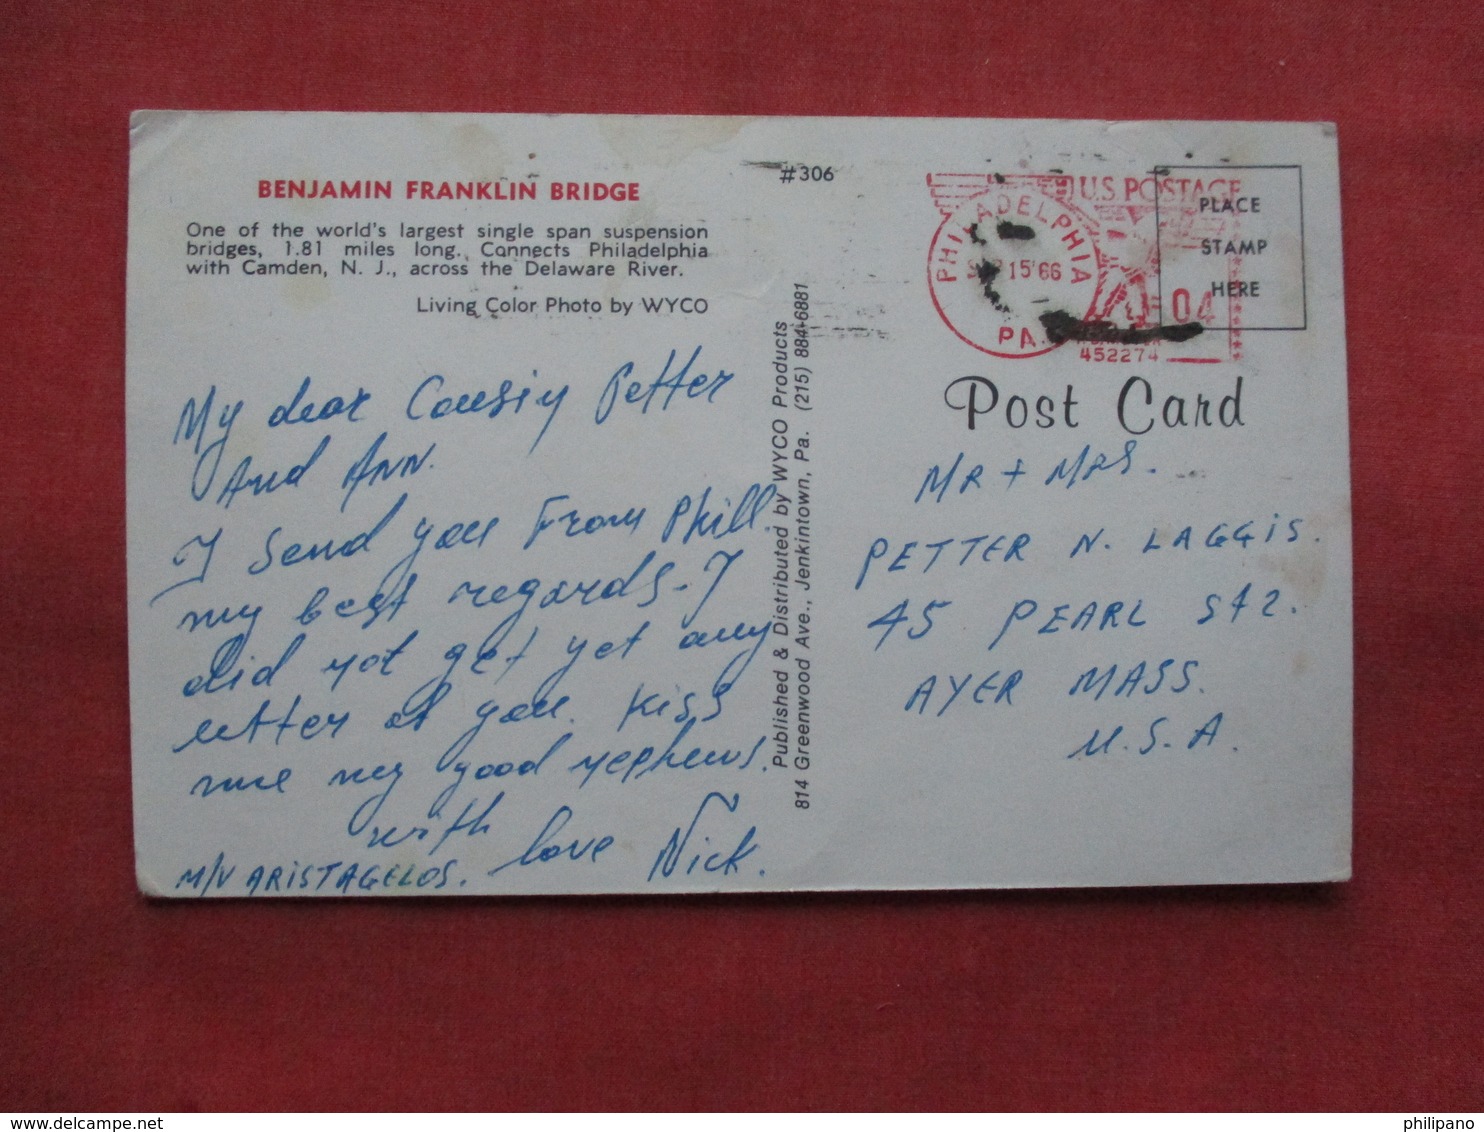 BENJAMIN FRANKLIN BRIDGE
One of the world's largest single span suspension
bridges, 1.81 miles long. Connects Philadelphia
with Camden, N. J., across the Delaware River.
Living Color Photo by WYCO
My dear Cousiy Petter
And Ann.
I send you From Phill
my best regards. I
did not get yet any
letter of you. Kiss
me my good nephews.
with love Nick.
M/V ARISTAGELOS.
#306
Published & Distributed by WYCO Products
814 Greenwood Ave., Jenkintown, Pa. (215) 884-6881
PHILADELPHIA
SEP 15'66
PA.
U.S. POSTAGE
04
452274
PLACE
STAMP
HERE
Post Card
MR + MRS.
PETTER N. LAGGIS.
45 PEARL St2.
AYER MASS.
U.S.A.
www.delcampe.net
philipano